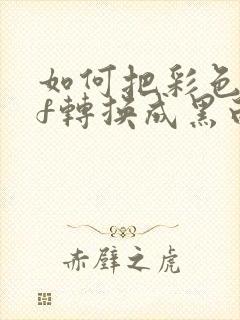 如何把彩色
f轉換成黑
赤壁之虎